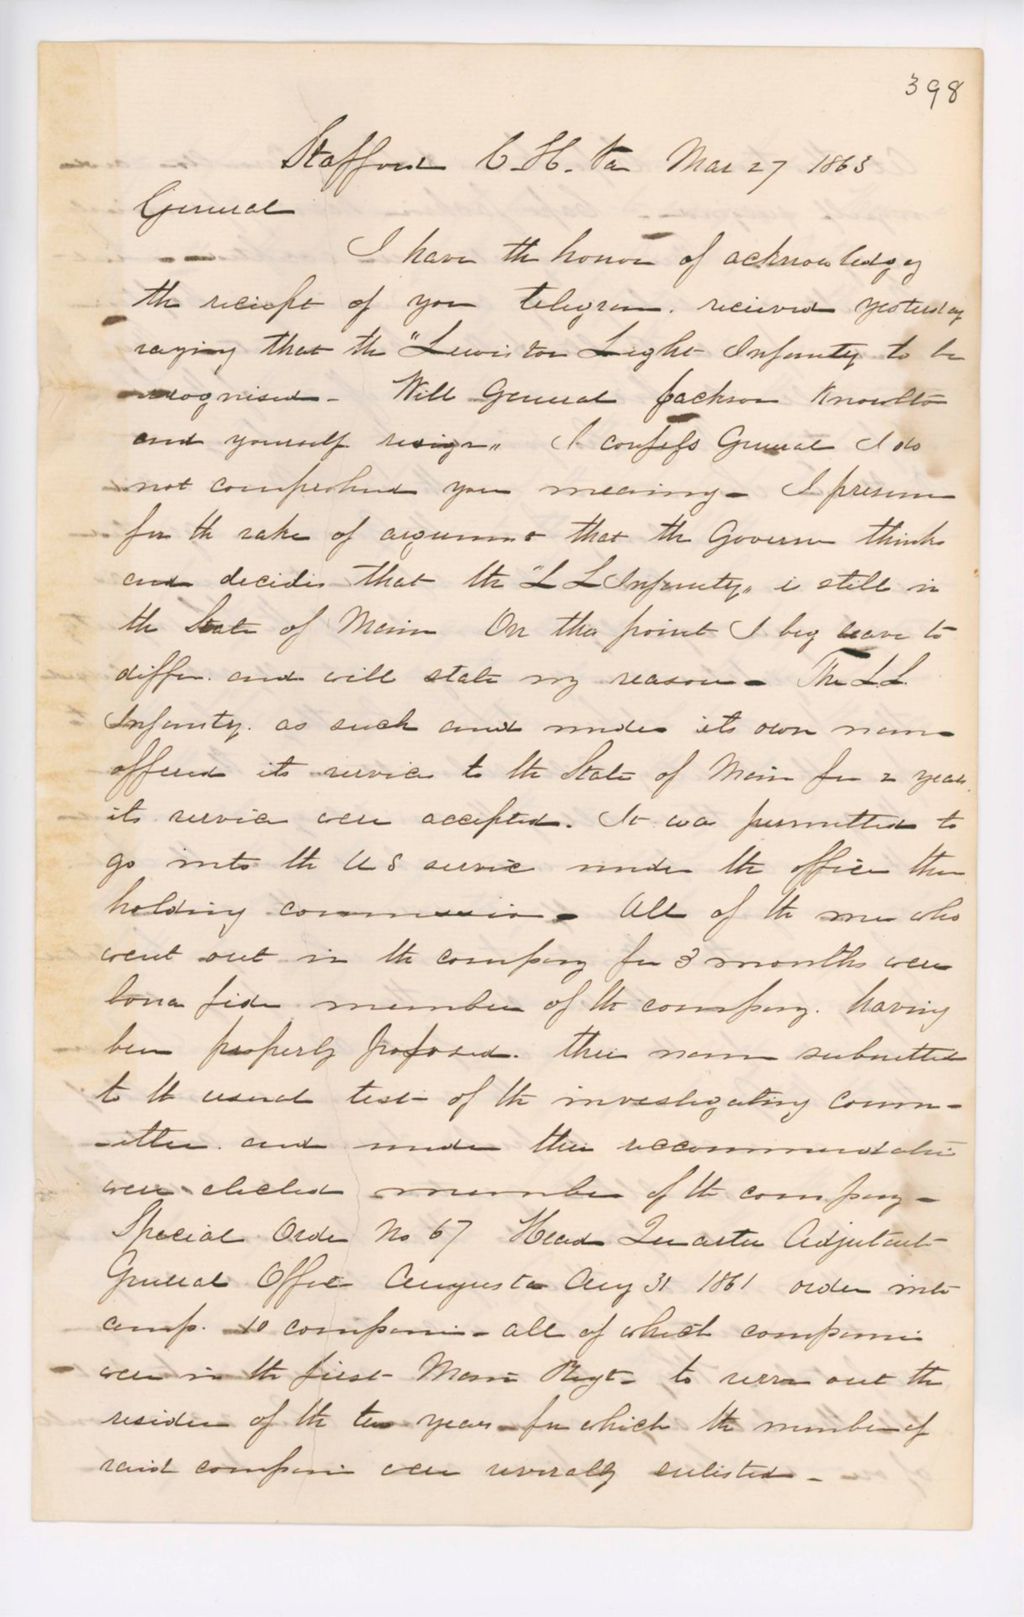 398
Stafford C. H. Va Mar 27 1863
General
I have the honor of acknowledgeg
the reciept of your telegram. recieved yesterday
saying that the "Lewiston Light Infantry to be
recognised - Will General Jackson Knowlton
and yourself resign" I confess General I do
not comprehend your meaning - I presume
for the sake of argument that the Governor thinks
and decides that the "L L Infantry" is still in
the State of Maine On this point I beg leave to
differ. and will state my reasons - The L.L.
Infantry. as such and under its own name
offered its services to the State of Maine for 2 years.
its services were accepted. It was permitted to
go into the U S service under the officers then
holding commissions - All of the men who
went out in the company for 3 months were
bona fide members of the company. having
been properly proposed. their names submitted
to the usual test of the investigating comm-
-ittee. and under their recommendation
were elected members of the company -
Special Order No 67 Head Quarters Adjutant
General Office Augusta Aug 31 1861 orders into
camp. 10 companies - all of which companies
were in the first Maine Regt - to serve out the
residue of the two years - for which the members of
said companies were severally enlisted -